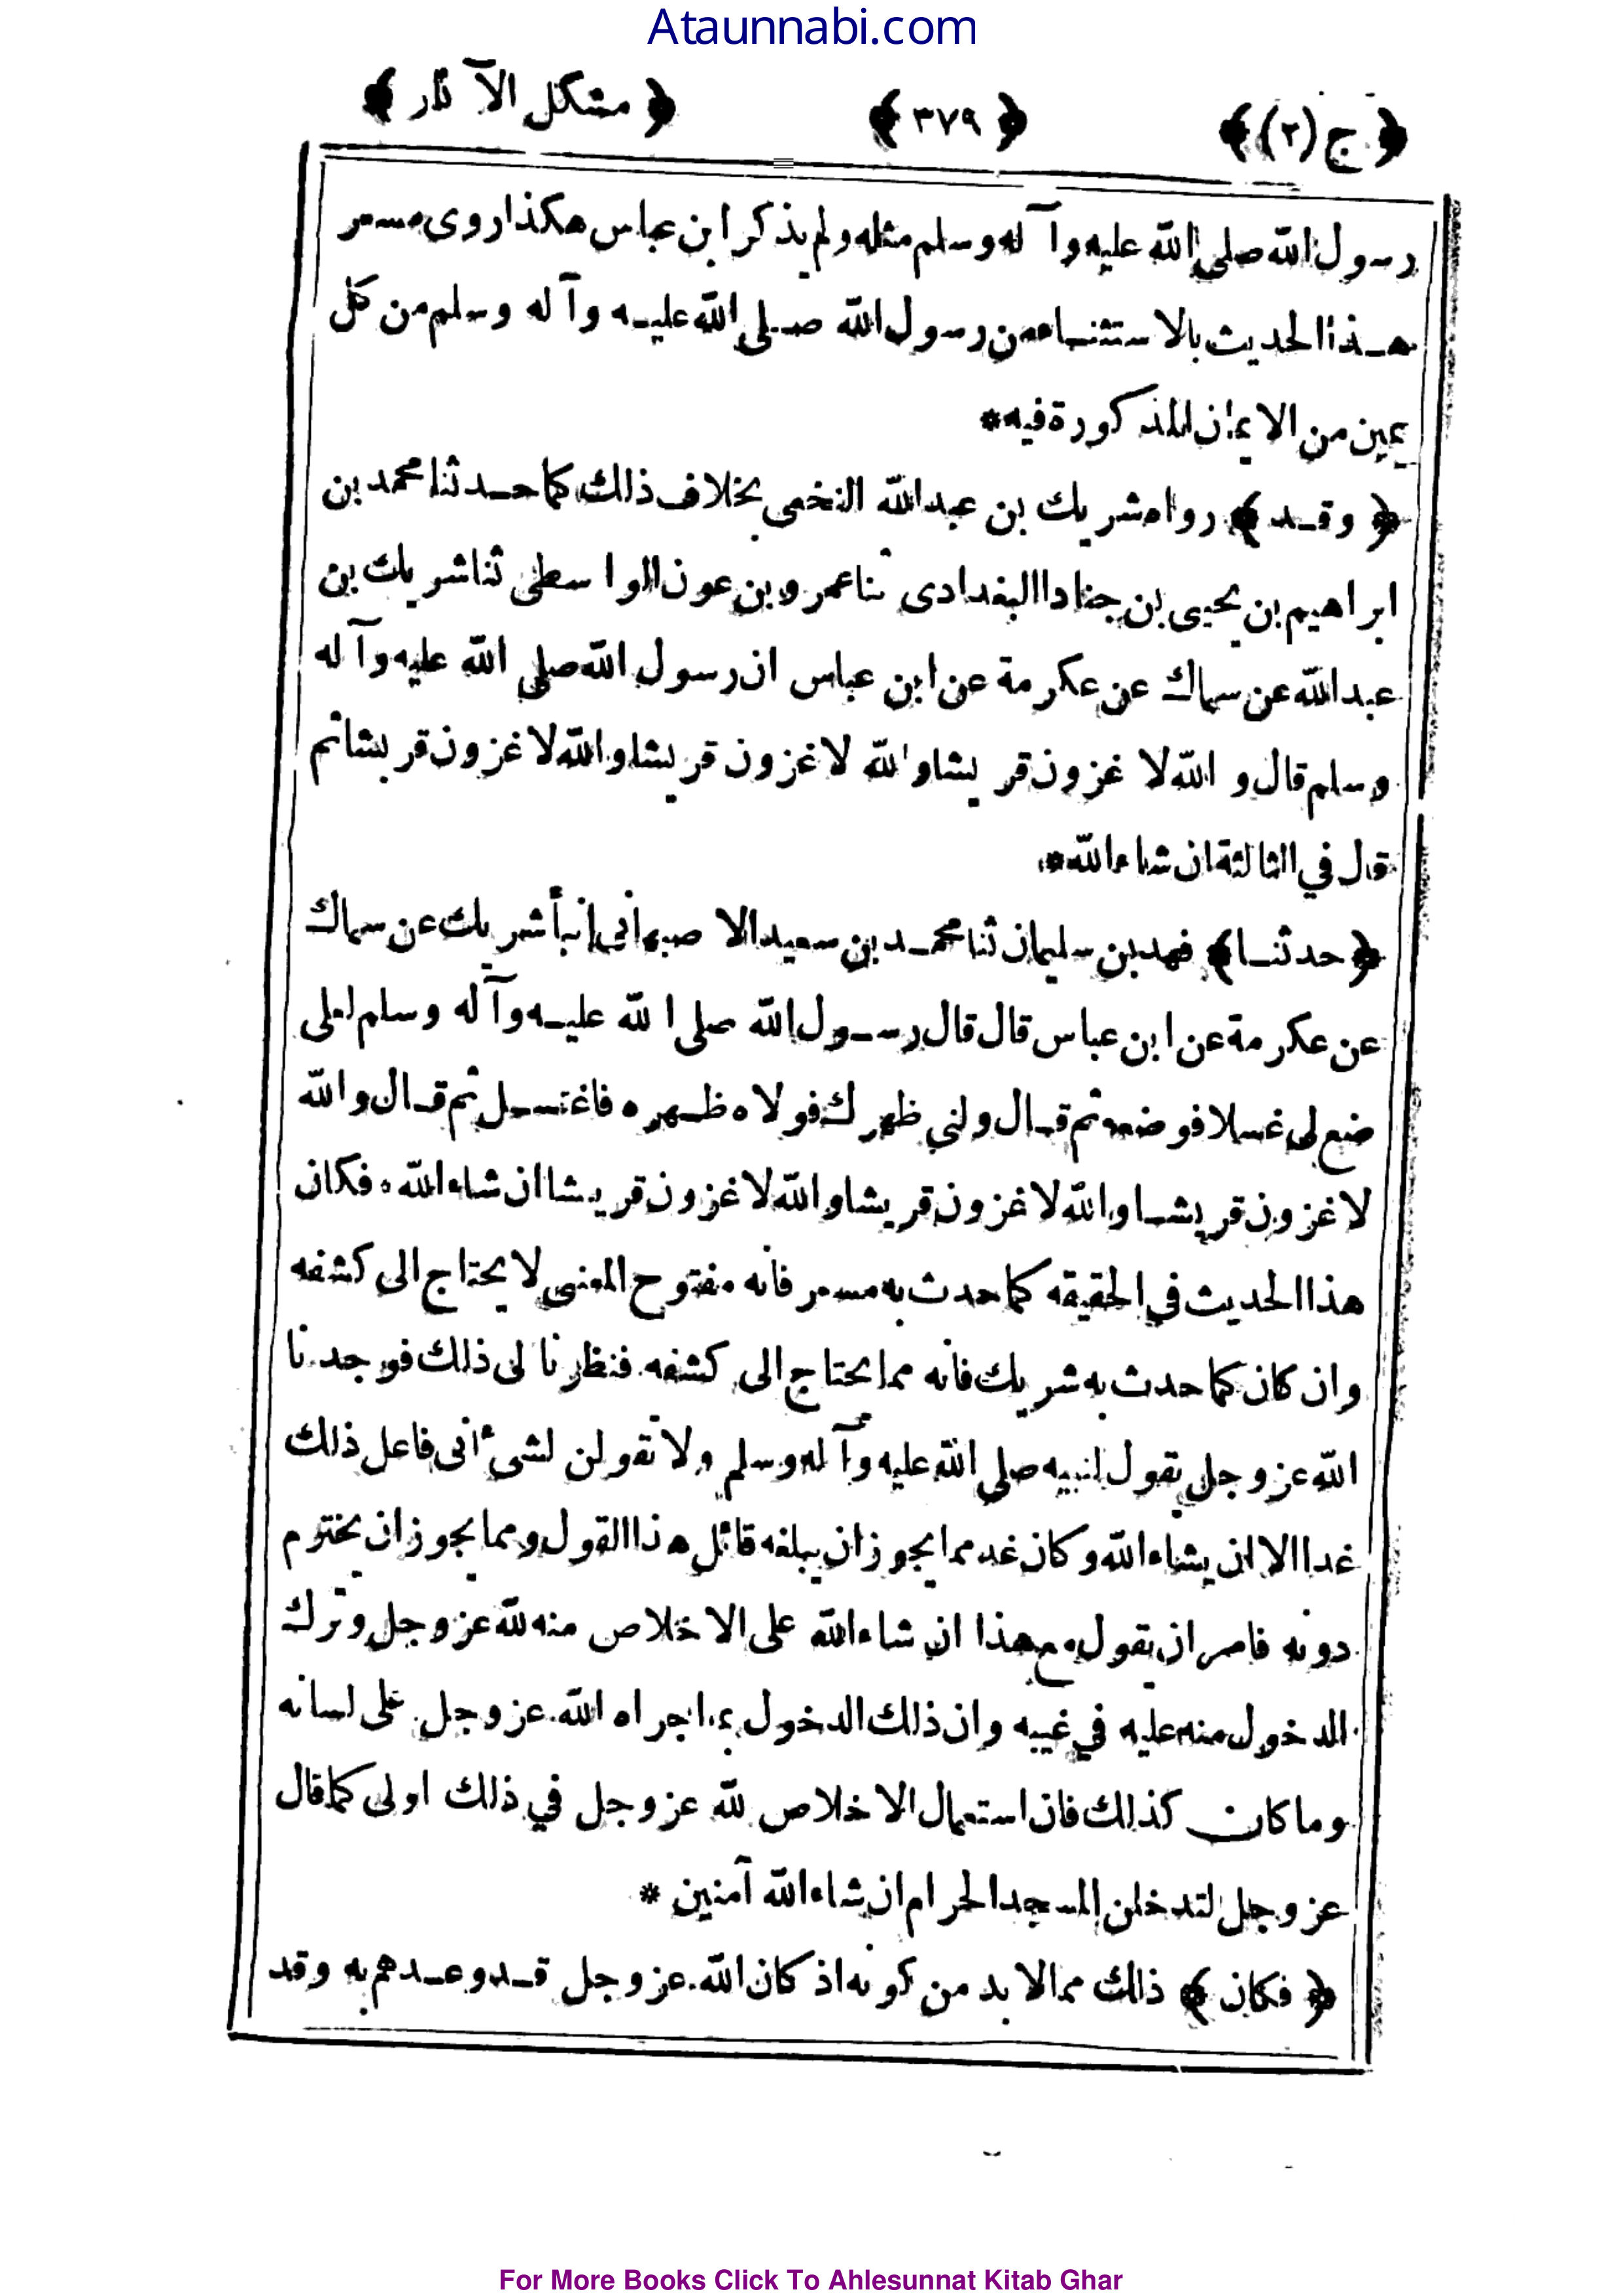 Ataunnabi.com
﴿ ج (٢) ﴾ ﴿ ٣٧٩ ﴾ ﴿ مشكل الآثار ﴾
رسول الله صلى الله عليه وآله وسلم مثله ولم يذكر ابن عباس هكذا روى مسعر
هذا الحديث بالاستثناء من رسول الله صلى الله عليه وآله وسلم من كل
يمين من الايمان المذكورة فيه*
﴿ وقد ﴾ رواه شريك بن عبدالله النخعى بخلاف ذلك كما حدثنا محمد بن
ابراهيم بن يحيى بن جناد البغدادى ثنا عمرو بن عون الواسطى ثنا شريك بن
عبدالله عن سماك عن عكرمة عن ابن عباس ان رسول الله صلى الله عليه وآله
وسلم قال والله لاغزون قريشا والله لاغزون قريشا والله لاغزون قريشا ثم
قال في الثالثة ان شاء الله*
﴿ حدثنا ﴾ فهد بن سليمان ثنا محمد بن سعيد الاصبهاني انبأ شريك عن سماك
عن عكرمة عن ابن عباس قال قال رسول الله صلى الله عليه وآله وسلم لعلى
ضع لى غسلا فوضعه ثم قال ولني ظهرك فولاه ظهره فاغتسل ثم قال والله
لاغزون قريشا والله لاغزون قريشا والله لاغزون قريشا ان شاء الله ٥ فكان
هذا الحديث في الحقيقه كما حدث به مسعر فانه مفتوح المعنى لا يحتاج الى كشفه
وان كان كما حدث به شريك فانه مما يحتاج الى كشفه فنظرنا لى ذلك فوجدنا
الله عز وجل يقول لنبيه صلى الله عليه وآله وسلم ولا تقولن لشئ انى فاعل ذلك
غدا الا ان يشاء الله وكان غد مما يجوز ان يبلغه قائل هذا القول ومما يجوز ان يخترم
دونه فامر ان يقول مع هذا ان شاء الله على الاخلاص منه لله عز وجل وترك
الدخول منه عليه في غيبه وان ذلك الدخول بما اجراه الله عز وجل على لسانه
وما كان كذلك فان استعمال الاخلاص لله عز وجل في ذلك اولى كما قال
عز وجل لتدخلن المسجد الحرام ان شاء الله آمنين *
﴿ فكان ﴾ ذلك مما لا بد من كونه اذ كان الله عز وجل قد وعدهم به وقد
For More Books Click To Ahlesunnat Kitab Ghar